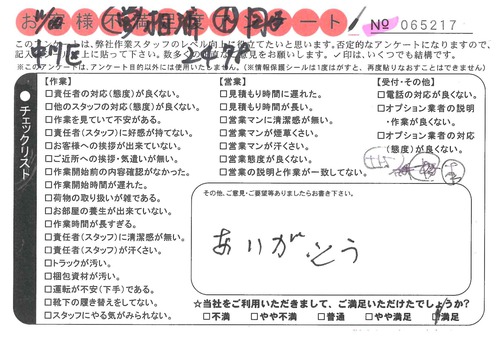 お客様不満足度アンケート
№ 065217
中川区
このアンケートは、弊社作業スタッフのレベル向上に役立てたいと思います。否定的なアンケートになりますので、
※このアンケートは、アンケート目的以外には使用いたしません。(※情報保護シールは1度はがすと、再度貼りなおすことはできません)
チェックリスト
【作業】
□責任者の対応(態度)が良くない。
□他のスタッフの対応(態度)が良くない。
□作業を見ていて不安がある。
□責任者(スタッフ)に好感が持てない。
□お客様への挨拶が出来ていない。
□ご近所への挨拶・気遣いが無い。
□作業開始前の内容確認がなかった。
□作業開始時間が遅れた。
□荷物の取り扱いが雑である。
□お部屋の養生が出来ていない。
□作業時間が長すぎる。
□責任者(スタッフ)に清潔感が無い。
□責任者(スタッフ)が汗くさい。
□トラックが汚い。
□梱包資材が汚い。
□運転が不安(下手)である。
□靴下の履き替えをしてない。
□スタッフにやる気がみられない。
【営業】
□見積もり時間に遅れた。
□見積もり時間が長い。
□営業マンに清潔感が無い。
□営業マンが煙草くさい。
□営業マンが汗くさい。
□営業態度が良くない。
□営業の説明と作業が一致してない。
【受付・その他】
□電話の対応が良くない。
□オプション業者の説明
・作業が良くない。
□オプション業者の対応
(態度)が良くない。
その他、ご意見・ご要望等ありましたらお書き下さい。
ありがとう
☆当社をご利用いただきまして、ご満足いただけたでしょうか?
□不満 □やや不満 □普通 □やや満足 □満足